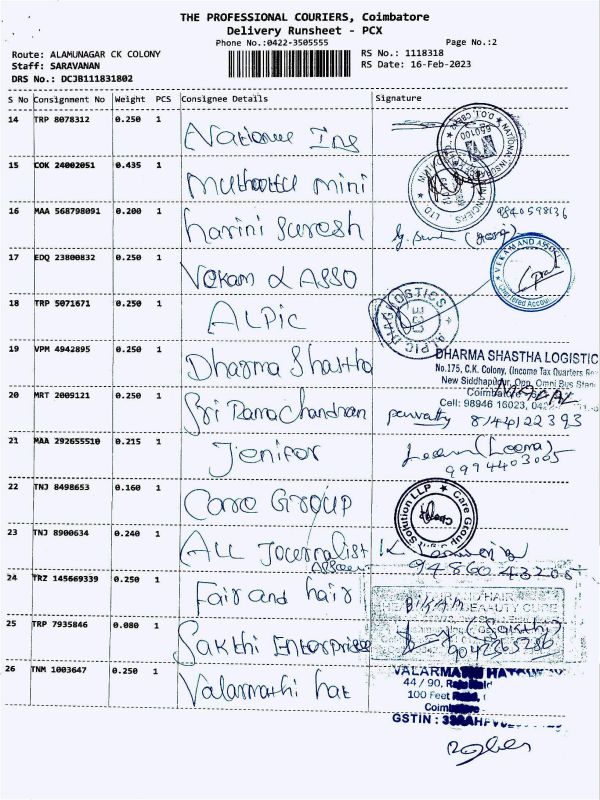 THE PROFESSIONAL COURIERS, Coimbatore
Delivery Runsheet - PCX
Phone No.:0422-3505555
Page No.:2
Route: ALAMUNAGAR CK COLONY
RS No.: 1118318
Staff: SARAVANAN
RS Date: 16-Feb-2023
DRS No.: DCJB111831802
S No Consignment No Weight PCS Consignee Details Signature
14 TRP 8078312 0.250 1 National Ins
15 COK 24002051 0.435 1 Muthoottu mini
16 MAA 568798091 0.200 1 harini Suresh
9840598136
17 EDQ 23800832 0.250 1 Vekam & ASSO
VEKAM AND ASSOC
Chartered Accou
18 TRP 5071671 0.250 1 ALPIC
ALPIC DIAGNOSTICS
19 VPM 4942895 0.250 1 Dharma Shastha
DHARMA SHASTHA LOGISTIC
No.175, C.K. Colony, (Income Tax Quarters
New Siddhapudur, Opp. Omni Bus Stand
Coimbatore
Cell: 98946 16023, 0422
20 MRT 2009121 0.250 1 Sri Rama Chandran
parvathy 8144122393
21 MAA 292655510 0.215 1 Jenifer
(Leema)
9994403005
22 TNJ 8498653 0.160 1 Care GROUP
Solution LLP ★ Care Group
23 TNJ 8900634 0.240 1 ALL Journalist
24 TRZ 145669339 0.250 1 Fair and hair
25 TRP 7935846 0.080 1 Sakthi Enterprise
(Sakthi)
9042565286
26 TNM 1003647 0.250 1 Valarmathi hat
VALARMATHI
44 / 90,
100 Feet
Coimb
GSTIN :